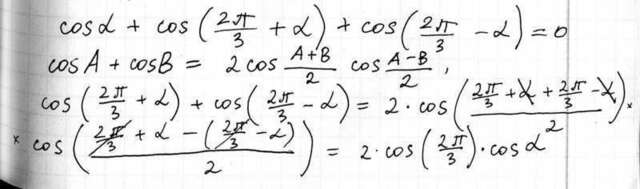 cosα + cos(2π/3 + α) + cos(2π/3 - α) = 0
cosA + cosB = 2cos (A+B)/2 cos (A-B)/2,
cos(2π/3 + α) + cos(2π/3 - α) = 2·cos((2π/3 + α + 2π/3 - α)/2)×
× cos((2π/3 + α - (2π/3 - α))/2) = 2·cos(2π/3)·cosα